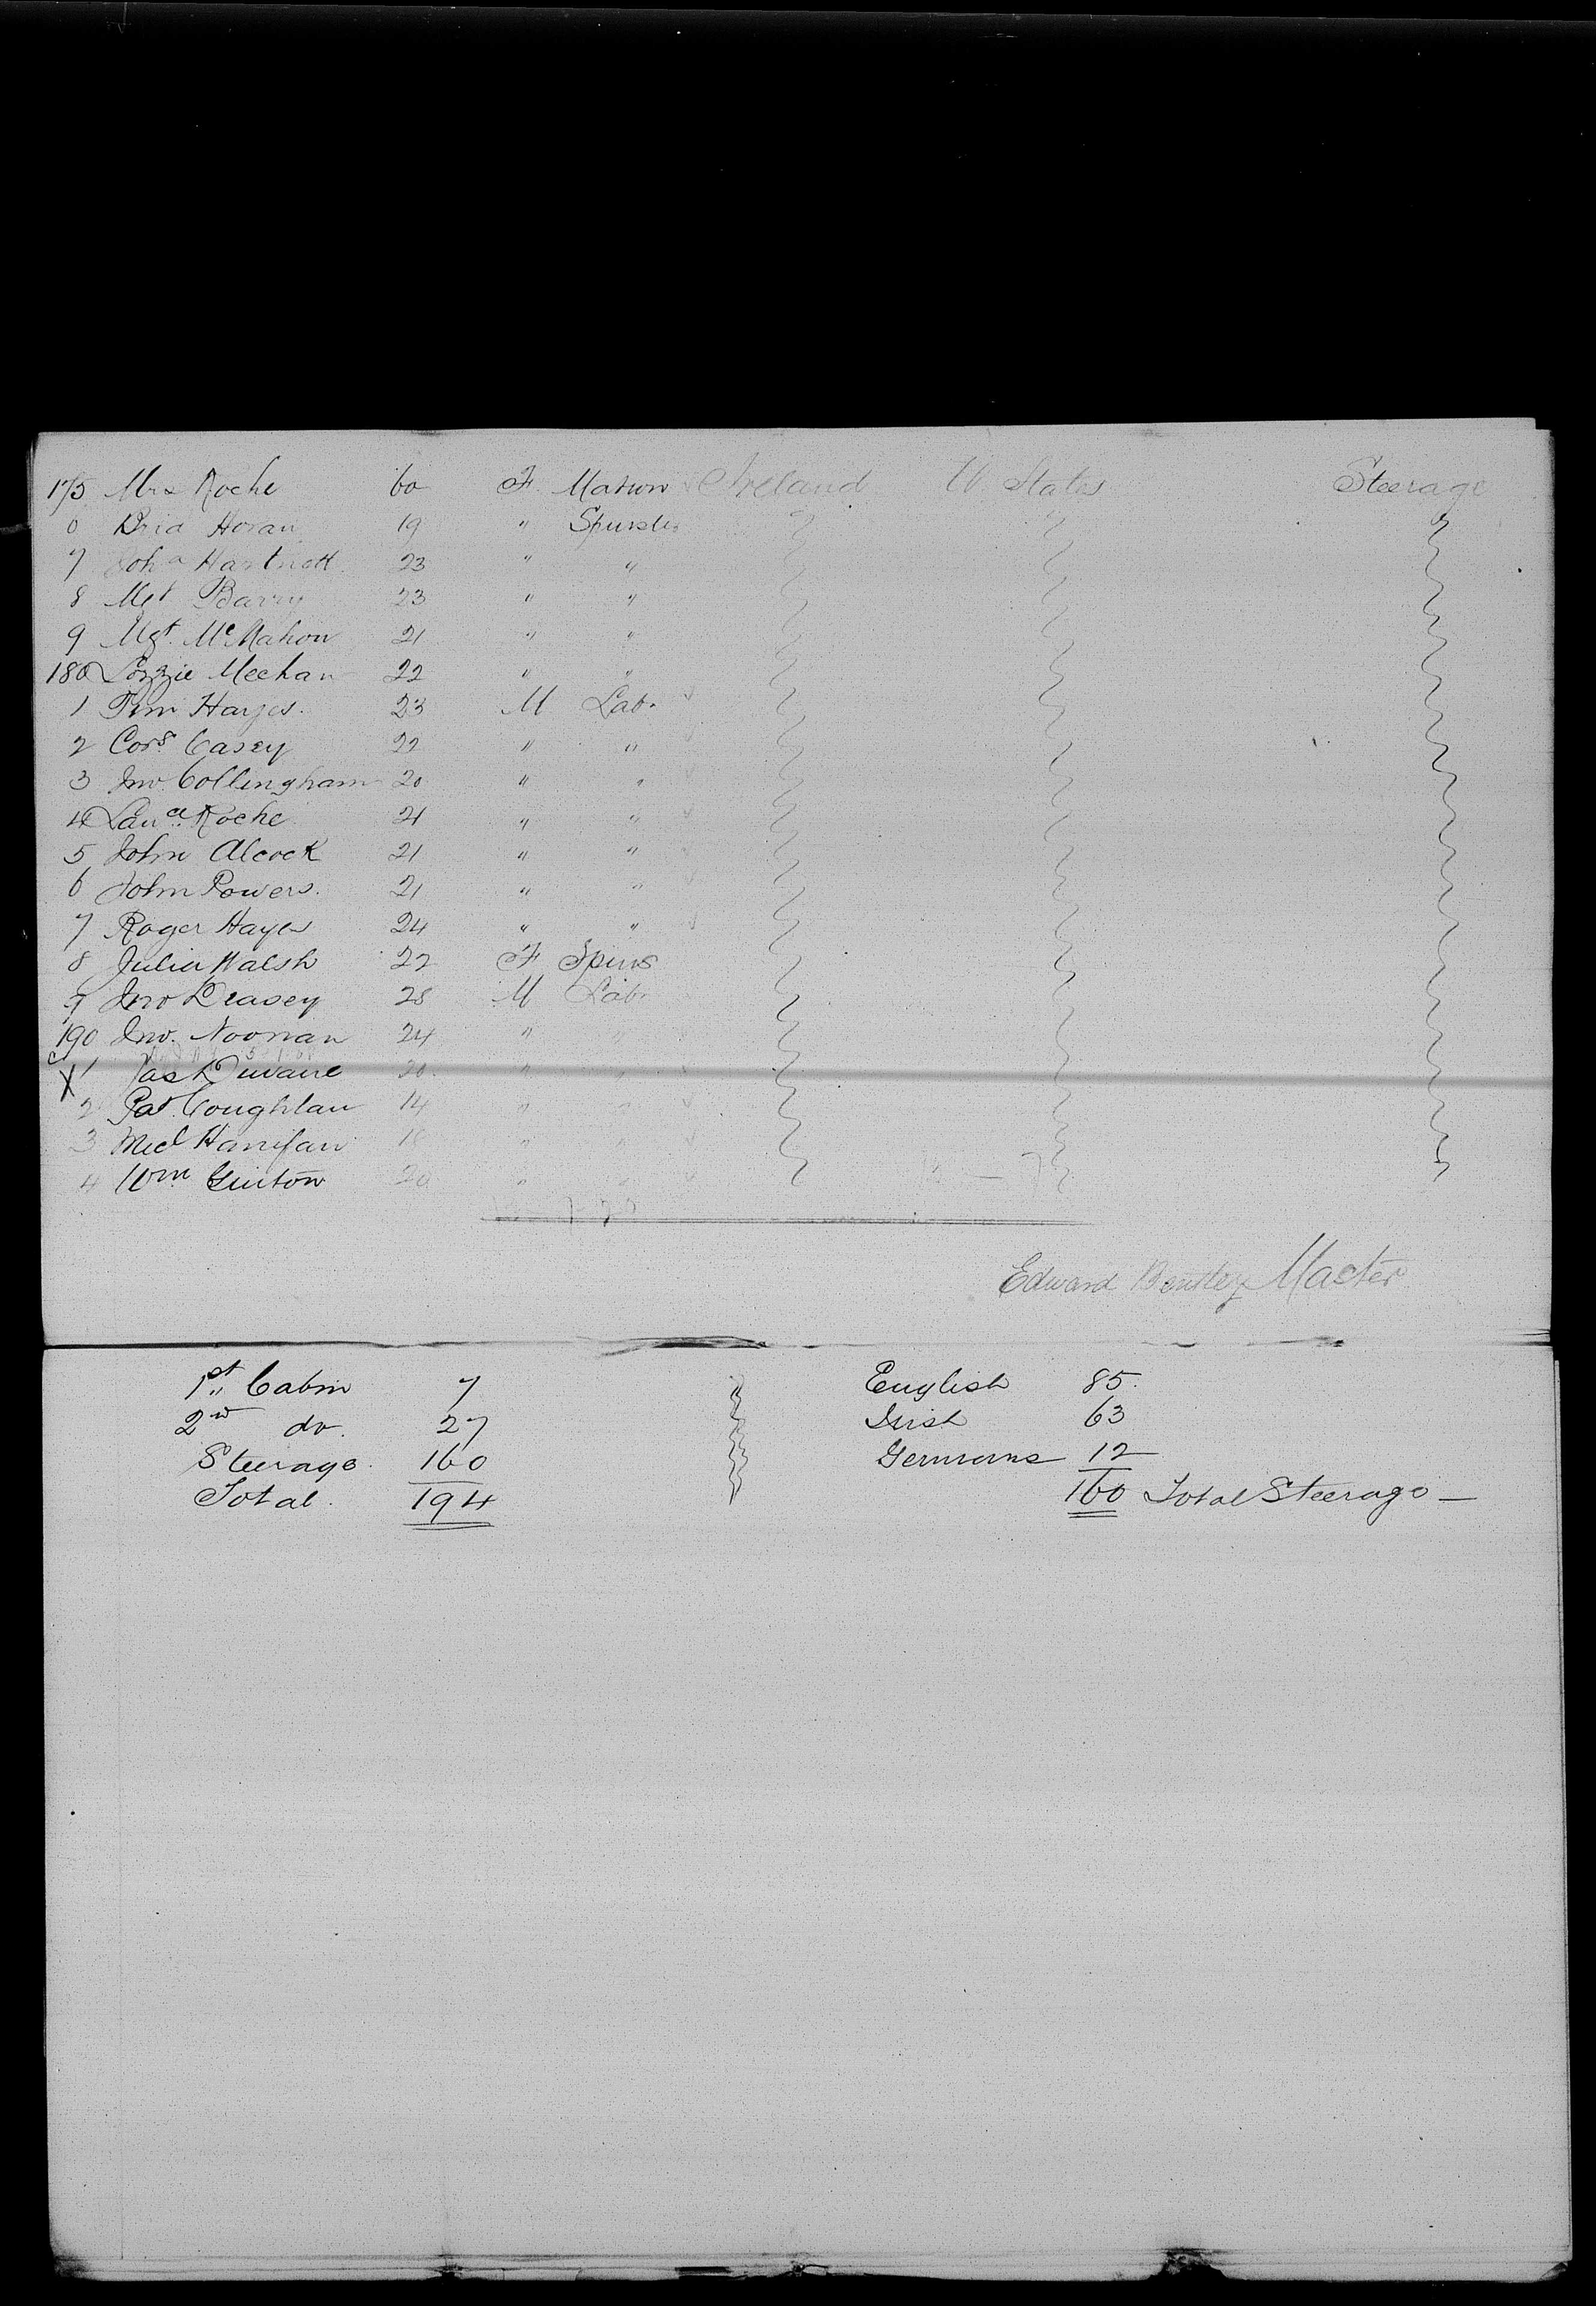 175 Mrs Roche 60 F. Matron Ireland U States Steerage
6 Brid Horan 19 " Spinster
7 Joha Hartnett 23 " "
8 Mgt Barry 23 " "
9 Mgt. McMahon 21 " "
180 Lizzie Meehan 22 " "
1 Tim Hayes. 23 M Labr
2 Cors Casey 22 " "
3 Jno. Collingham 20 " "
4 Laua Roche 21 " "
5 John Alcock 21 " "
6 John Powers. 21 " "
7 Roger Hayes 24 " "
8 Julia Walsh 22 F Spins
9 Jno Deasey 28 M Labr
190 Jno. Noonan 24 " "
X 1 Jas Duvane 20 " "
2 Pat. Coughlan 14 " "
3 Micl Hanifan 18 " "
4 Wm Guiton 20 " "
Edward Bentley Master
1st Cabin 7 English 85.
2nd do. 27 Irish 63
Steerage. 160 Germans 12
Total. 194 160 Total Steerage —